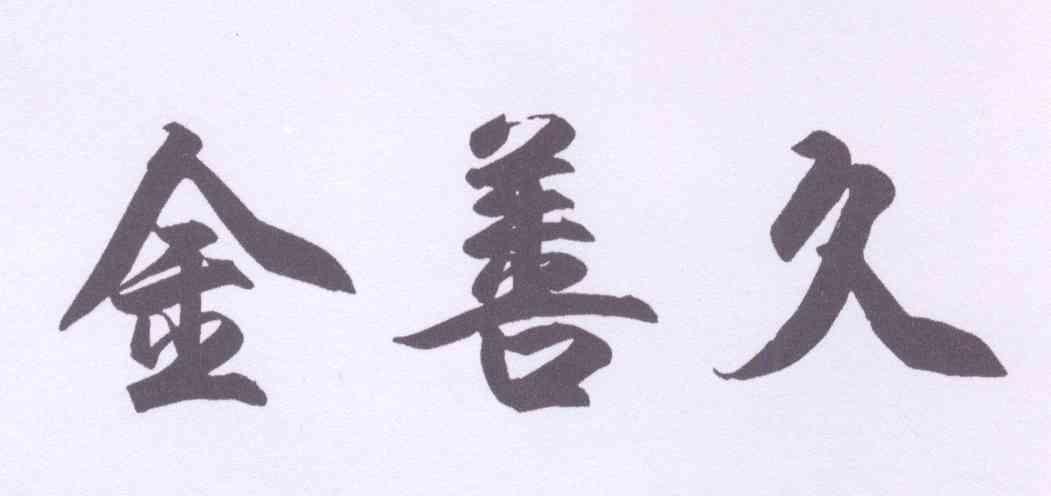 金善久